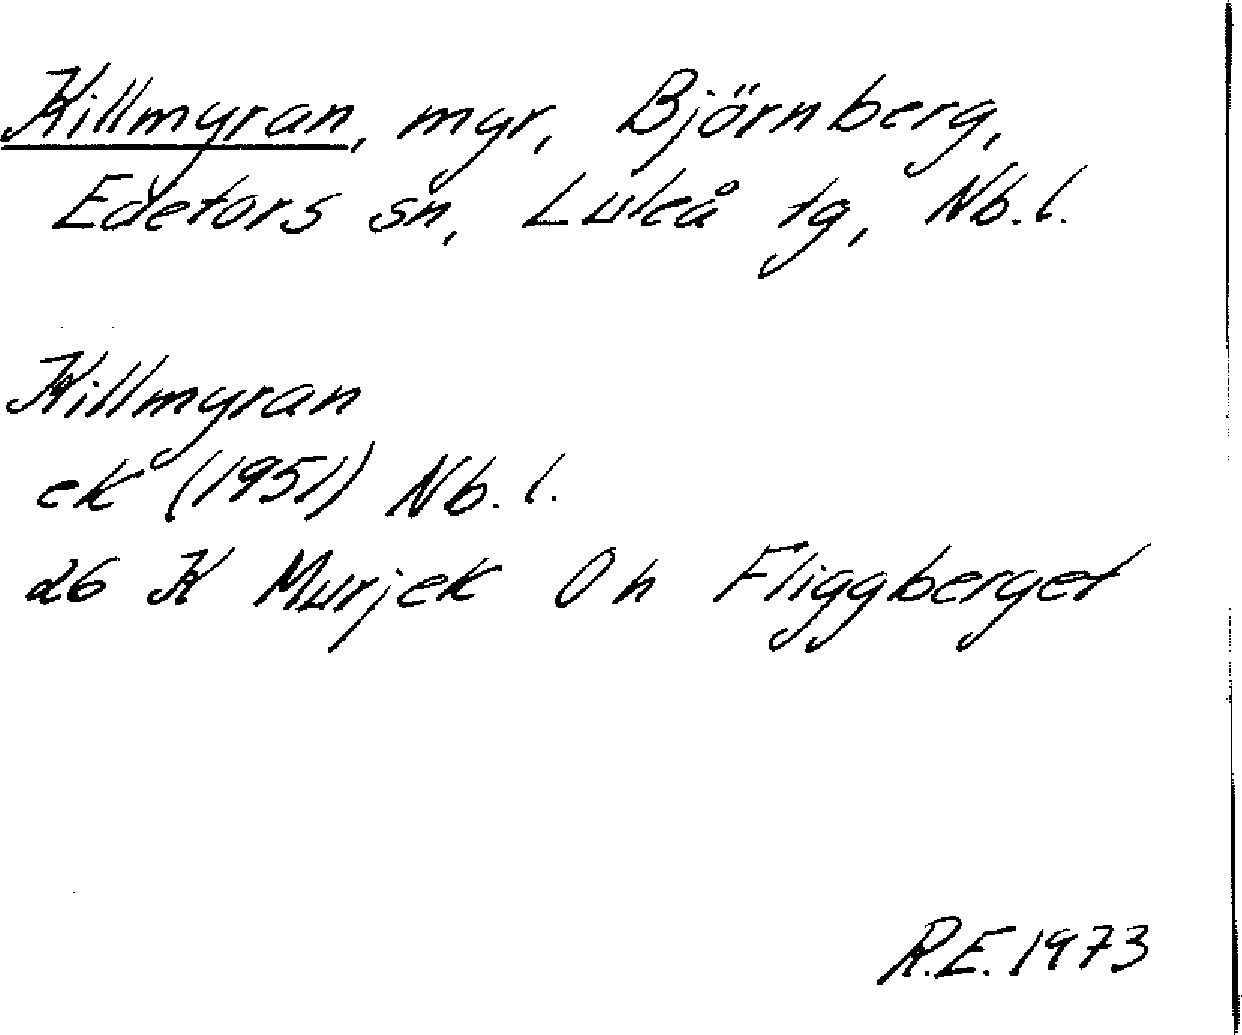 Killmyran, myr, Björnberg,
Edefors sn, Luleå tg, Nb. l.
Killmyran
ek (1951) Nb. l.
26 K Murjek 0 h Fliggberget
R.E. 1973